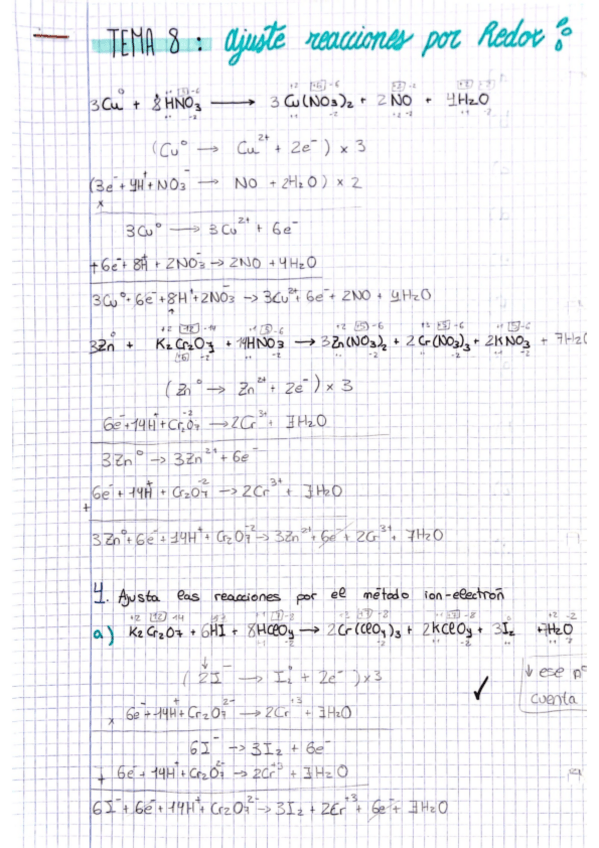 TEMA 8 : ajuste reacciones por Redox :
3Cu⁰ + 8HNO₃ → 3Cu(NO₃)₂ + 2NO + 4H₂O
(Cu⁰ → Cu²⁺ + 2e⁻) x 3
(3e⁻ + 4H⁺ + NO₃⁻ → NO + 2H₂O) x 2
3Cu⁰ → 3Cu²⁺ + 6e⁻
+ 6e⁻ + 8H⁺ + 2NO₃⁻ → 2NO + 4H₂O
3Cu⁰ + 6e⁻ + 8H⁺ + 2NO₃⁻ → 3Cu²⁺ + 6e⁻ + 2NO + 4H₂O
3Zn⁰ + K₂Cr₂O₇ + 14HNO₃ → 3Zn(NO₃)₂ + 2Cr(NO₃)₃ + 2KNO₃ + 7H₂O
(Zn⁰ → Zn²⁺ + 2e⁻) x 3
6e⁻ + 14H⁺ + Cr₂O₇⁻² → 2Cr³⁺ + 7H₂O
3Zn⁰ → 3Zn²⁺ + 6e⁻
6e⁻ + 14H⁺ + Cr₂O₇⁻² → 2Cr³⁺ + 7H₂O
+
3Zn⁰ + 6e⁻ + 14H⁺ + Cr₂O₇⁻² → 3Zn²⁺ + 6e⁻ + 2Cr³⁺ + 7H₂O
4. Ajusta las reacciones por el método ion-electrón
a) K₂Cr₂O₇ + 6HI + 8HClO₄ → 2Cr(ClO₄)₃ + 2KClO₄ + 3I₂ + 7H₂O
(2I⁻ → I₂⁰ + 2e⁻) x 3
↓ ese nº
cuenta
x 6e⁻ + 14H⁺ + Cr₂O₇²⁻ → 2Cr⁺³ + 7H₂O
6I⁻ → 3I₂ + 6e⁻
+ 6e⁻ + 14H⁺ + Cr₂O₇²⁻ → 2Cr⁺³ + 7H₂O
6I⁻ + 6e⁻ + 14H⁺ + Cr₂O₇²⁻ → 3I₂ + 2Cr⁺³ + 6e⁻ + 7H₂O